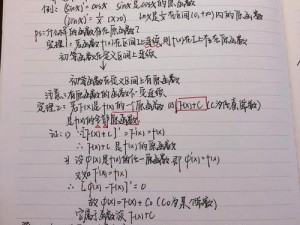 例: (sinx)' = cosx  sinx是cosx的原函数
(lnx)' = 1/x (x>0)  lnx是1/x在区间(0,+∞)内的原函数
ps: 什么样的函数存在原函数?
定理1: 若函数f(x)在区间I上连续, 则f(x)在I上存在原函数
初等函数在定义区间上连续
初等函数在定义区间上有原函数
注意: 有原函数的函数不一定连续
定理2: 若F(x)是f(x)的一个原函数 则F(x)+C (C为任意常数)
是f(x)的全部原函数
证: 1) ∵[F(x)+C]' = F'(x) = f(x)
∴ F(x)+C是f(x)的原函数
2) 设Φ(x)是f(x)的任一原函数 即Φ'(x)=f(x)
又知F'(x)=f(x)
∴ [Φ(x)-F(x)]' = 0
故Φ(x)=F(x)+C₀ (C₀为某个常数)
它属于函数族F(x)+C